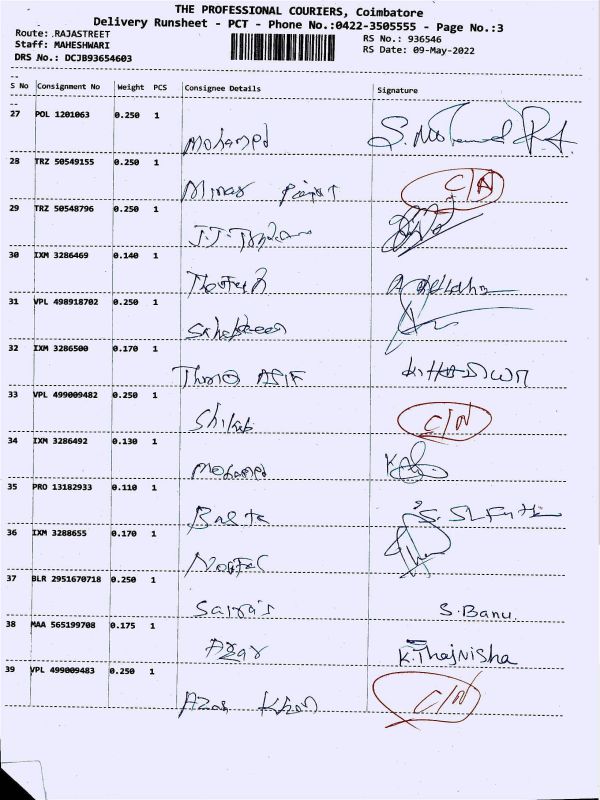 THE PROFESSIONAL COURIERS, Coimbatore
Delivery Runsheet - PCT - Phone No.:0422-3505555 - Page No.:3
Route: .RAJASTREET
RS No.: 936546
Staff: MAHESHWARI
RS Date: 09-May-2022
DRS No.: DCJB93654603
S No Consignment No Weight PCS Consignee Details Signature
27 POL 1201063 0.250 1
Mohamed
28 TRZ 50549155 0.250 1
C/N
29 TRZ 50548796 0.250 1
30 IXM 3286469 0.140 1
31 VPL 498918702 0.250 1
32 IXM 3286500 0.170 1
ASIF
33 VPL 499009482 0.250 1
C/N
34 IXM 3286492 0.130 1
Mohamed
35 PRO 13182933 0.110 1
36 IXM 3288655 0.170 1
37 BLR 2951670718 0.250 1
S.Banu.
38 MAA 565199708 0.175 1
Azar K.Thajnisha
39 VPL 499009483 0.250 1
Khan C/N